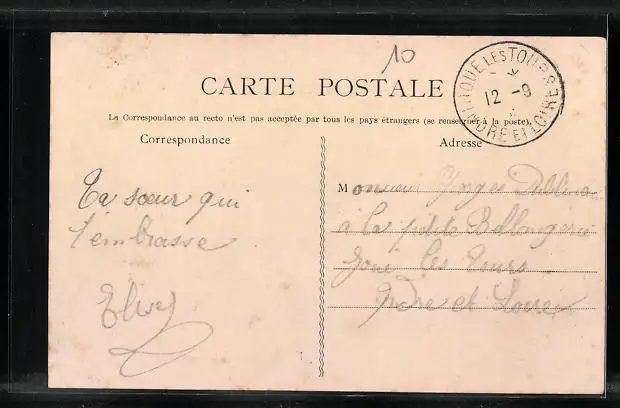 10
CARTE POSTALE
JOUE LES TOURS
12 -9
INDRE ET LOIRE
La Correspondance au recto n'est pas acceptée par tous les pays étrangers (se renseigner à la poste).
Correspondance
Adresse
Ta sœur qui
t'embrasse
Monsieur Georges
à la petite
Joué les Tours
Indre et Loire